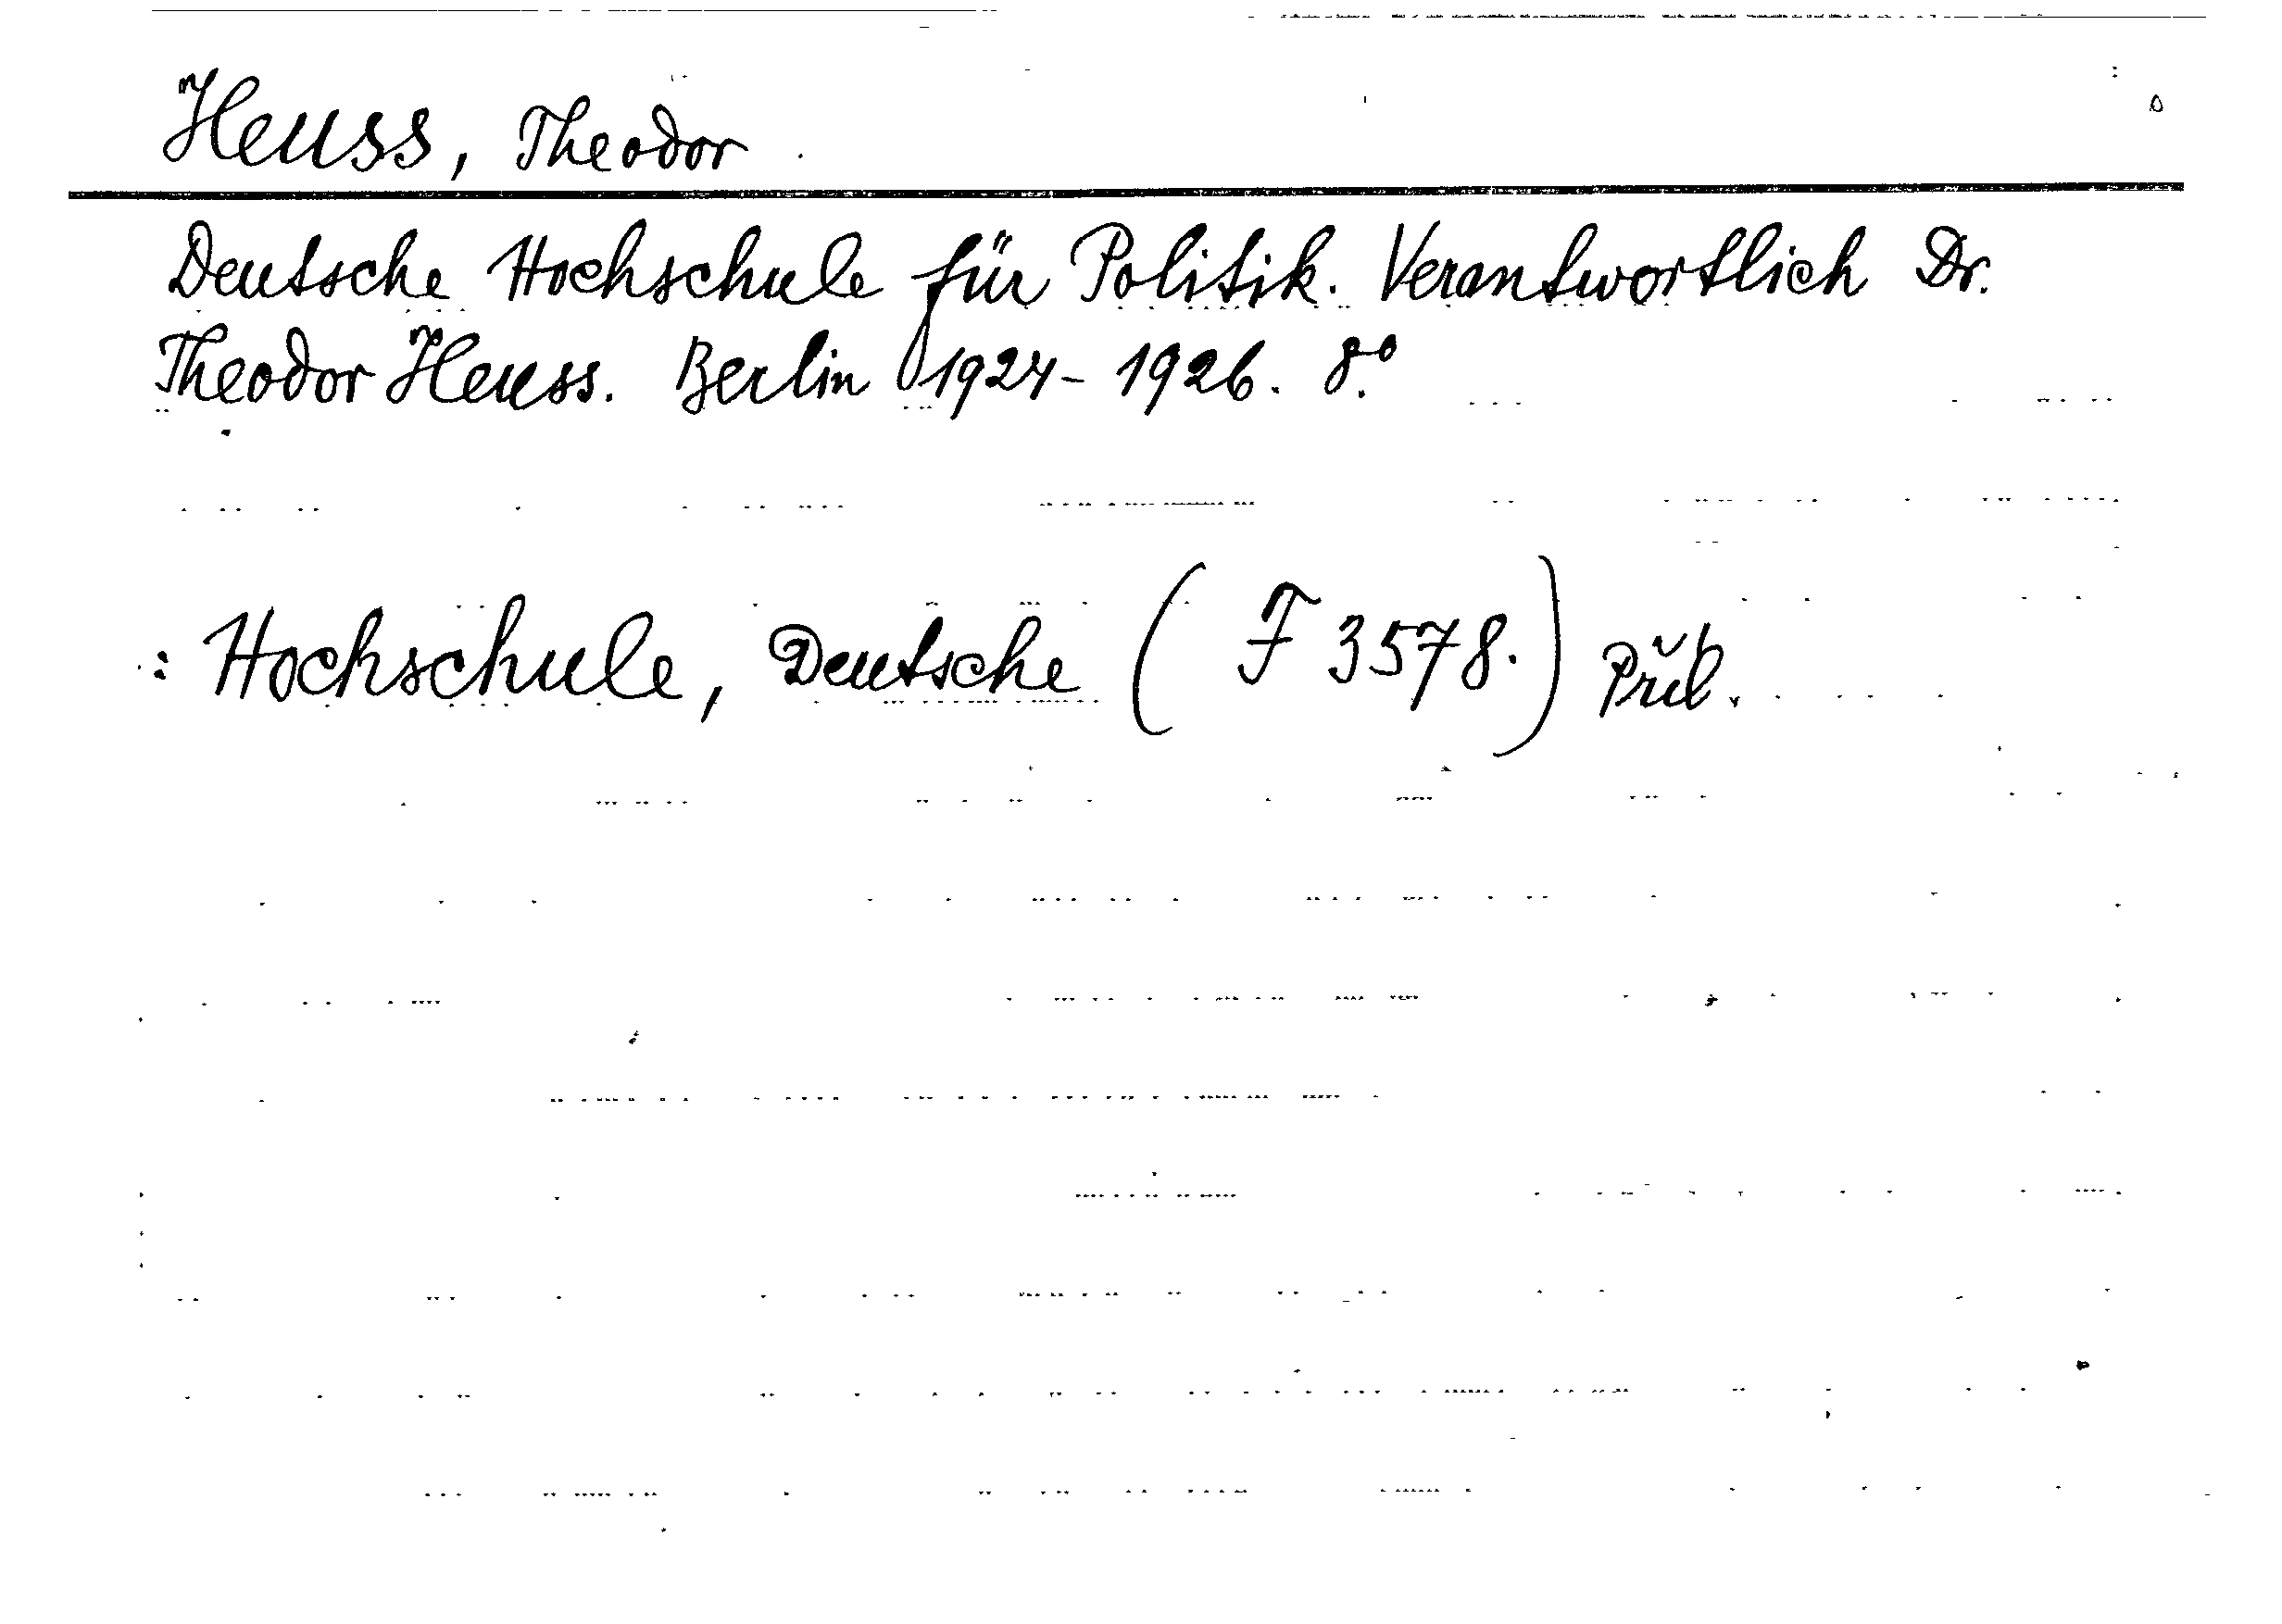 Heuss, Theodor
Deutsche Hochschule für Politik. Verantwortlich Dr.
Theodor Heuss. Berlin 1924-1926. 8.°
: Hochschule, Deutsche (F 3578.) Přib.